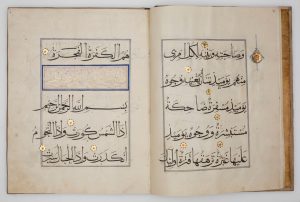 وصاحبته وبنيه لكل امرئ
منهم يومئذ شأن يغنيه وجوه
يومئذ مسفرة ضاحكة
مستبشرة ووجوه يومئذ
عليها غبرة ترهقها قترة أولئك
هم الكفرة الفجرة
بسم الله الرحمن الرحيم
إذا الشمس كورت وإذا النجوم
انكدرت وإذا الجبال سيرت